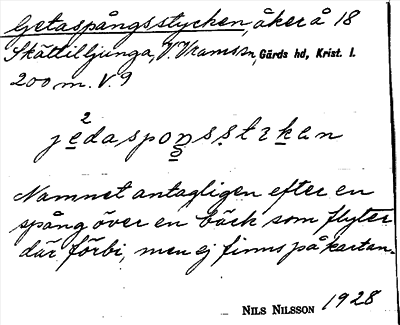 Getaspångsstycken, åker å 18
Skättilljunga, V. Vramssn, Gärds hd, Krist. l.
200 m. V. 9
Namnet antagligen efter en
spång över en bäck som flyter
där förbi, men ej finns på kartan.
NILS NILSSON 1928